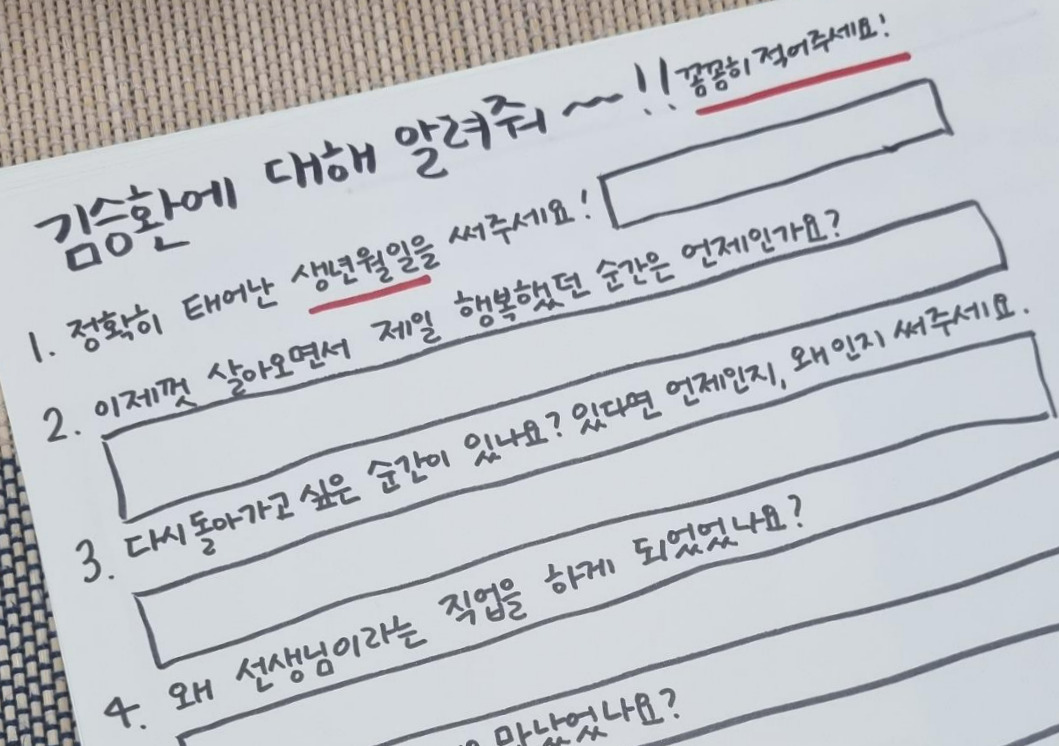 김승환에 대해 알려줘~!! 꼼꼼히 적어주세요!
1. 정확히 태어난 생년월일을 써주세요!
2. 이제껏 살아오면서 제일 행복했던 순간은 언제인가요?
3. 다시 돌아가고 싶은 순간이 있나요? 있다면 언제인지, 왜인지 써주세요.
4. 왜 선생님이라는 직업을 하게 되었었나요?
만났었나요?